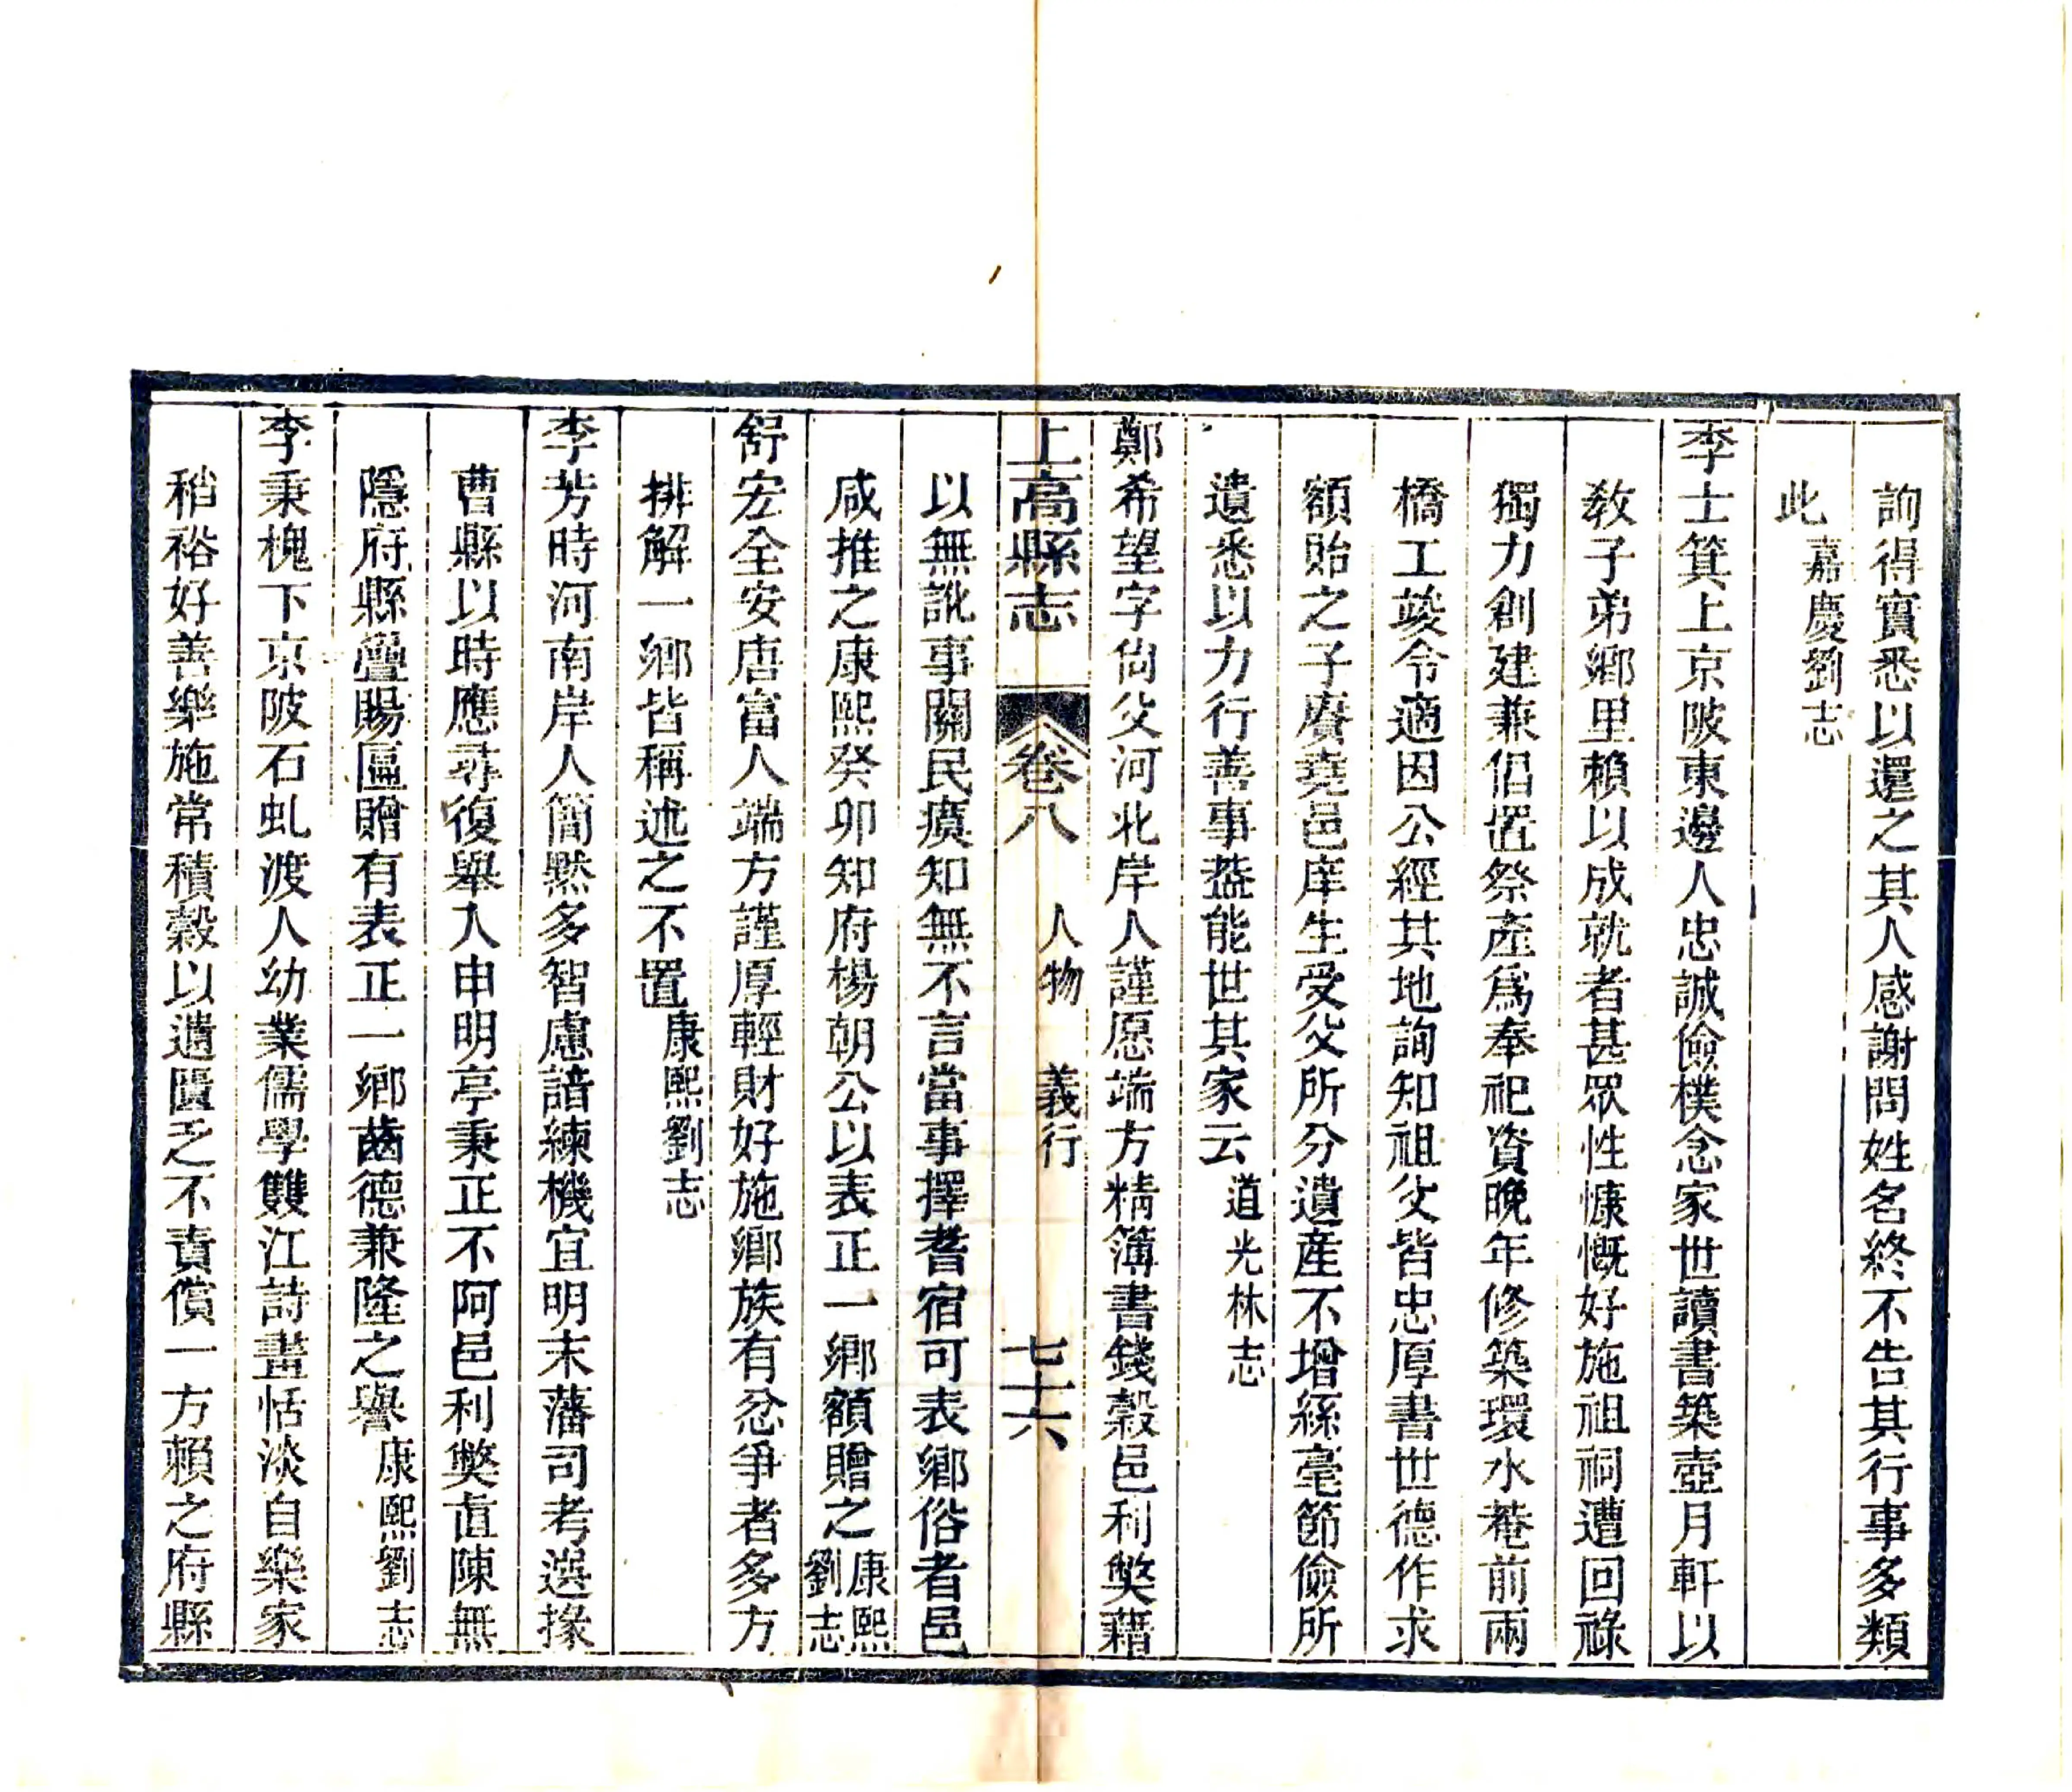 詢得實悉以還之其人感謝問姓名終不告其行事多類
此嘉慶劉志
李士箕上京陂東邊人忠誠儉樸念家世讀書築壺月軒以
敎子弟鄉里賴以成就者甚眾性慷慨好施祖祠遭回祿
獨力創建兼倡置祭產爲奉祀資晚年修築環水菴前兩
橋工竣令適因公經其地詢知祖父皆忠厚書世德作求
額貽之子賡堯邑庠生受父所分遺產不增絲毫節儉所
遺悉以力行善事葢能世其家云道光林志
鄭希望字尙父河北岸人謹愿端方精簿書錢穀邑利獘藉
以無訛事關民瘼知無不言當事擇耆宿可表鄉俗者邑
咸推之康熙癸卯知府楊朝公以表正一鄉額贈之康熙劉志
上高縣志 卷八 人物 義行 七十六
舒宏全安唐富人端方謹厚輕財好施鄉族有忿爭者多方
排解一鄉皆稱述之不置康熙劉志
李芳時河南岸人簡默多智慮諳練機宜明末藩司考選掾
曹縣以時應尋復舉入申明亭秉正不阿邑利獘直陳無
隱府縣疊賜區贈有表正一鄉齒德兼隆之譽康熙劉志
李秉槐下京陂石虬渡人幼業儒學雙江詩畫恬淡自樂家
稍裕好善樂施常積穀以遺匱乏不責償一方賴之府縣